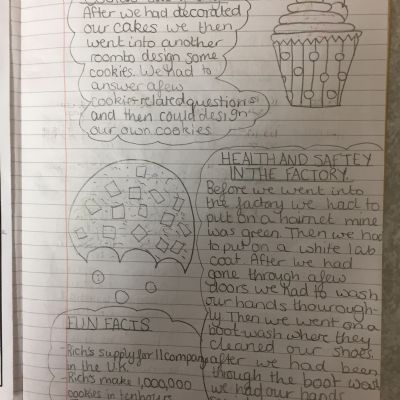 After we had decorated
our cakes we then
went into another
room to design some
cookies. We had to
answer a few
cookie related questions
and then could design
our own cookies
HEALTH AND SAFTEY
IN THE FACTORY
Before we went into
the factory we had to
put on a hairnet mine
was green. Then we had
to put on a white lab
coat. After we had
gone through a few
doors we had to wash
our hands thourough-
ly. Then we went on a
boot wash where they
cleaned our shoes.
after we had been
through the boot wash
we had our hands
FUN FACTS
Rich's supply for 11 company
in the U.K.
Rich's make 1,000,000
cookies in ten hours